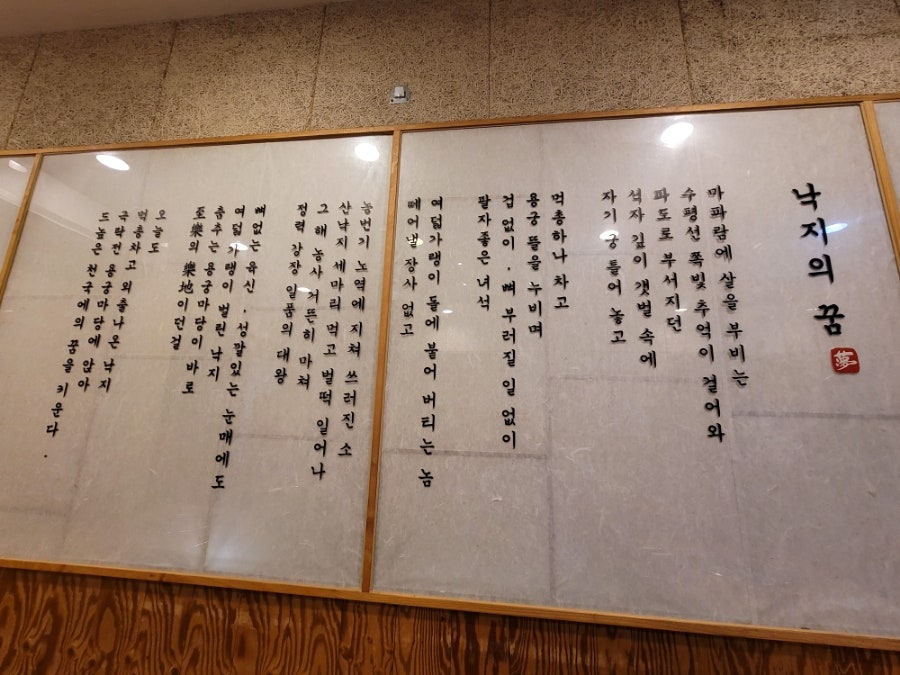 낙지의 꿈
夢
마파람에 살을 부비는
수평선 쪽빛 추억이 걸어와
파도로 부서지던
석자 깊이 갯벌 속에
자기 궁 틀어 놓고
먹총하나 차고
용궁 뜰을 누비며
겁없이, 뼈 부러질 일 없이
팔자좋은 녀석
여덟가랭이 돌에 붙어 버티는 놈
떼어낼 장사 없고
농번기 노역에 지쳐 쓰러진 소
산낙지 세마리 먹고 벌떡 일어나
그 해 농사 거뜬히 마쳐
정력 강장 일품의 대왕
뼈없는 육신, 성깔있는 눈매에도
여덟가랭이 벌린 낙지
춤추는 용궁마당이 바로
至樂의 樂地이던걸
오늘도
먹총차고 외출나온 낙지
극락전 용궁마당에 앉아
드높은 천국에의 꿈을 키운다.